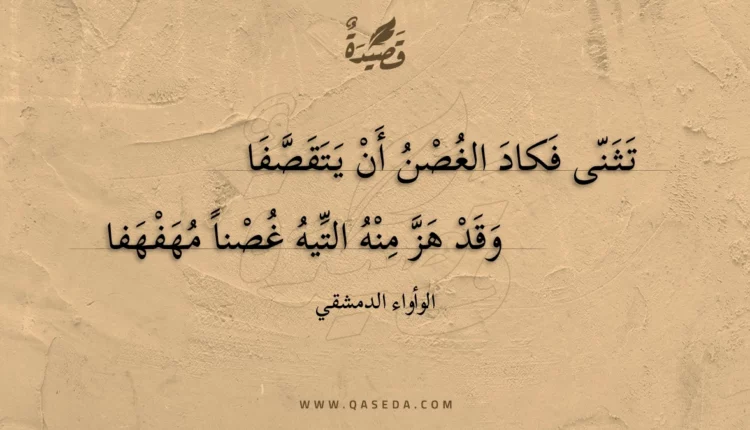 قَصِيدَةٌ
تَثَنّى فَكادَ الغُصْنُ أَنْ يَتَقَصَّفَا
وَقَدْ هَزَّ مِنْهُ التِّيهُ غُصْناً مُهَفْهَفا
الوأواء الدمشقي
WWW.QASEDA.COM